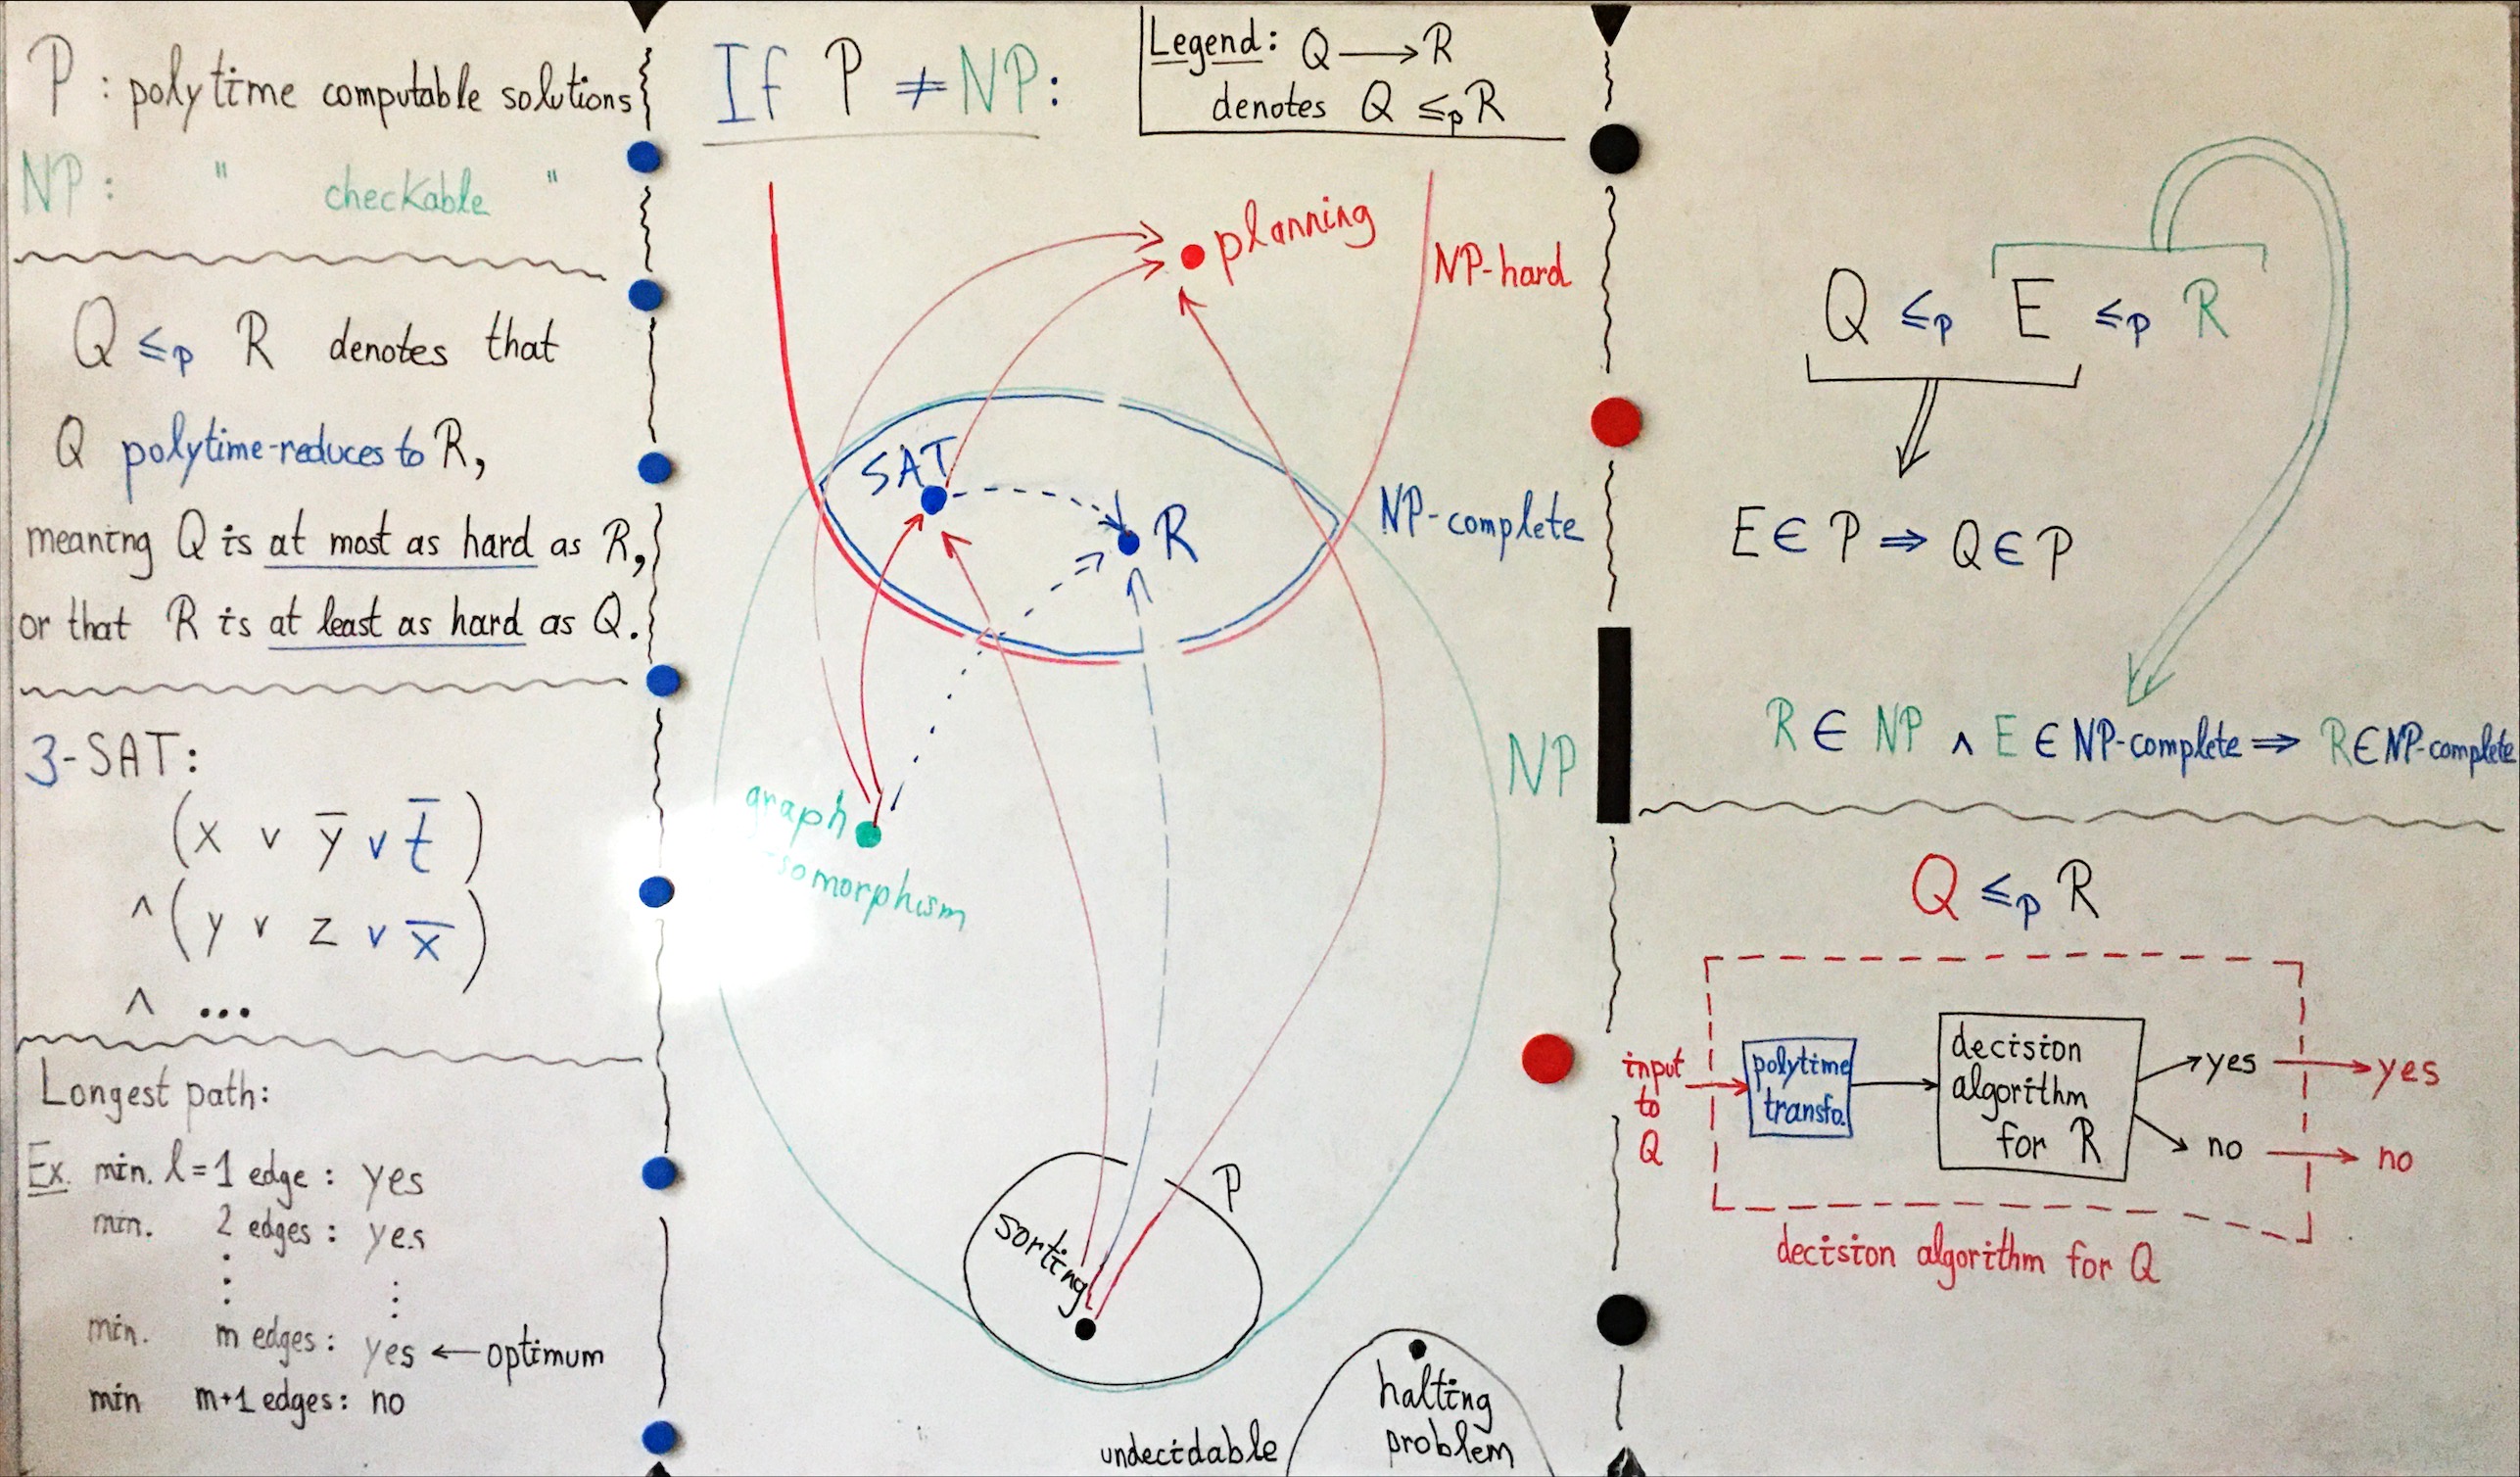 P : polytime computable solutions
NP : " checkable "
Q ≤p R denotes that
Q polytime-reduces to R,
meaning Q is at most as hard as R,
or that R is at least as hard as Q.
3-SAT:
(x ∨ y̅ ∨ t̅)
∧ (y ∨ z ∨ x̅)
∧ ...
Longest path:
Ex. min. l=1 edge : yes
min. 2 edges : yes
⋮ ⋮
min. m edges : yes ← optimum
min m+1 edges : no
If P ≠ NP:
Legend: Q → R
denotes Q ≤p R
planning
NP-hard
SAT
R
NP-complete
NP
graph
isomorphism
P
sorting
halting
problem
undecidable
Q ≤p E ≤p R
E ∈ P ⇒ Q ∈ P
R ∈ NP ∧ E ∈ NP-complete ⇒ R ∈ NP-complete
Q ≤p R
input
to
Q
polytime
transfo.
decision
algorithm
for R
yes
no
yes
no
decision algorithm for Q